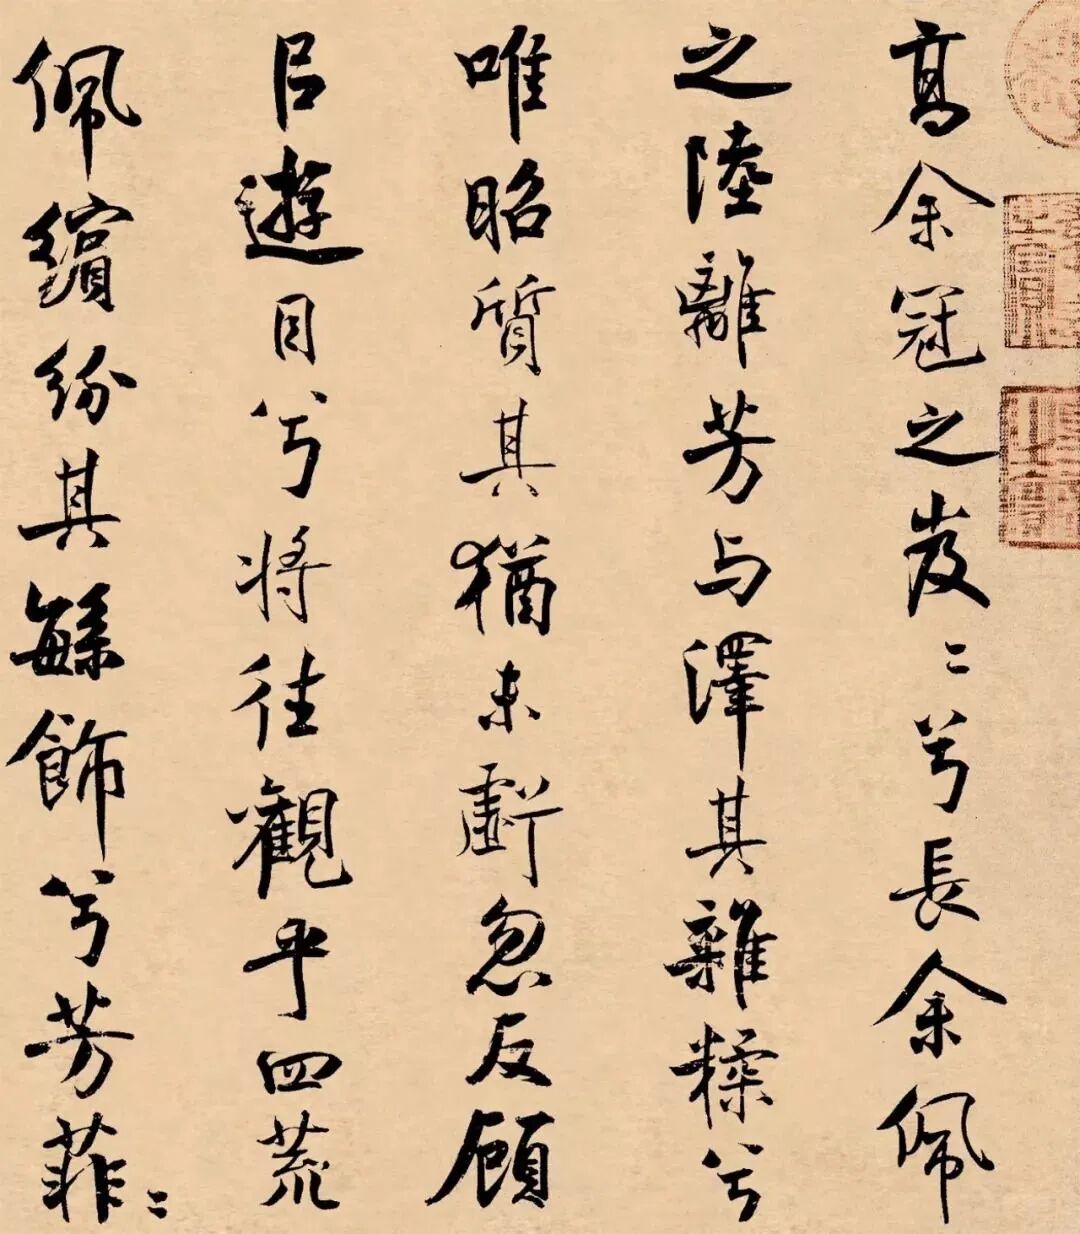 高余冠之岌〻兮長余佩
之陸離芳与澤其雜糅兮
唯昭質其猶未虧忽反顧
㠯遊目兮將往觀乎四荒
佩繽紛其繁飾兮芳菲〻